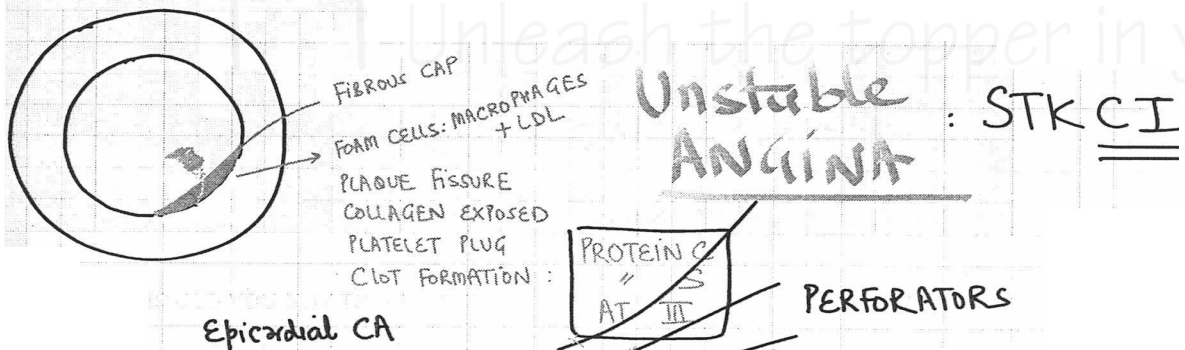 Unleash the topper in y
FIBROUS CAP
FOAM CELLS: MACROPHAGES
+ LDL
PLAQUE FISSURE
COLLAGEN EXPOSED
PLATELET PLUG
CLOT FORMATION :
Unstable
ANGINA
: STK CI
PROTEIN C
" S
AT III
PERFORATORS
Epicardial CA